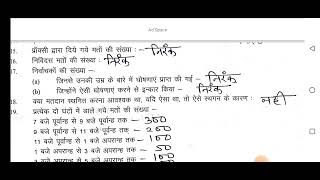 Ad Space
15. प्रॉक्सी द्वारा दिये गये मतों की संख्या :- निरंक
16. निविदत्त मतों की संख्या :- निरंक
17. निर्वाचकों की संख्या :-
(a) जिनसे उनकी उम्र के बारे में घोषणाएं प्राप्त की गई - निरंक
(b) जिन्होंने ऐसी घोषणाएं करने से इन्कार किया - निरंक
18. क्या मतदान स्थगित करना आवश्यक था, यदि ऐसा था, तो ऐसे स्थगन के कारण : नहीं
19. प्रत्येक दो घंटों में डाले गये मतों की संख्या -
7 बजे पूर्वान्ह से 9 बजे पूर्वान्ह तक - 300
9 बजे पूर्वान्ह से 11 बजे पूर्वान्ह तक - 200
11 बजे पूर्वान्ह से 1 बजे अपरान्ह तक - 100
1 बजे अपरान्ह से 3 बजे अपरान्ह तक - 50
3 बजे अपरान्ह से 5 बजे अपरान्ह तक - 100